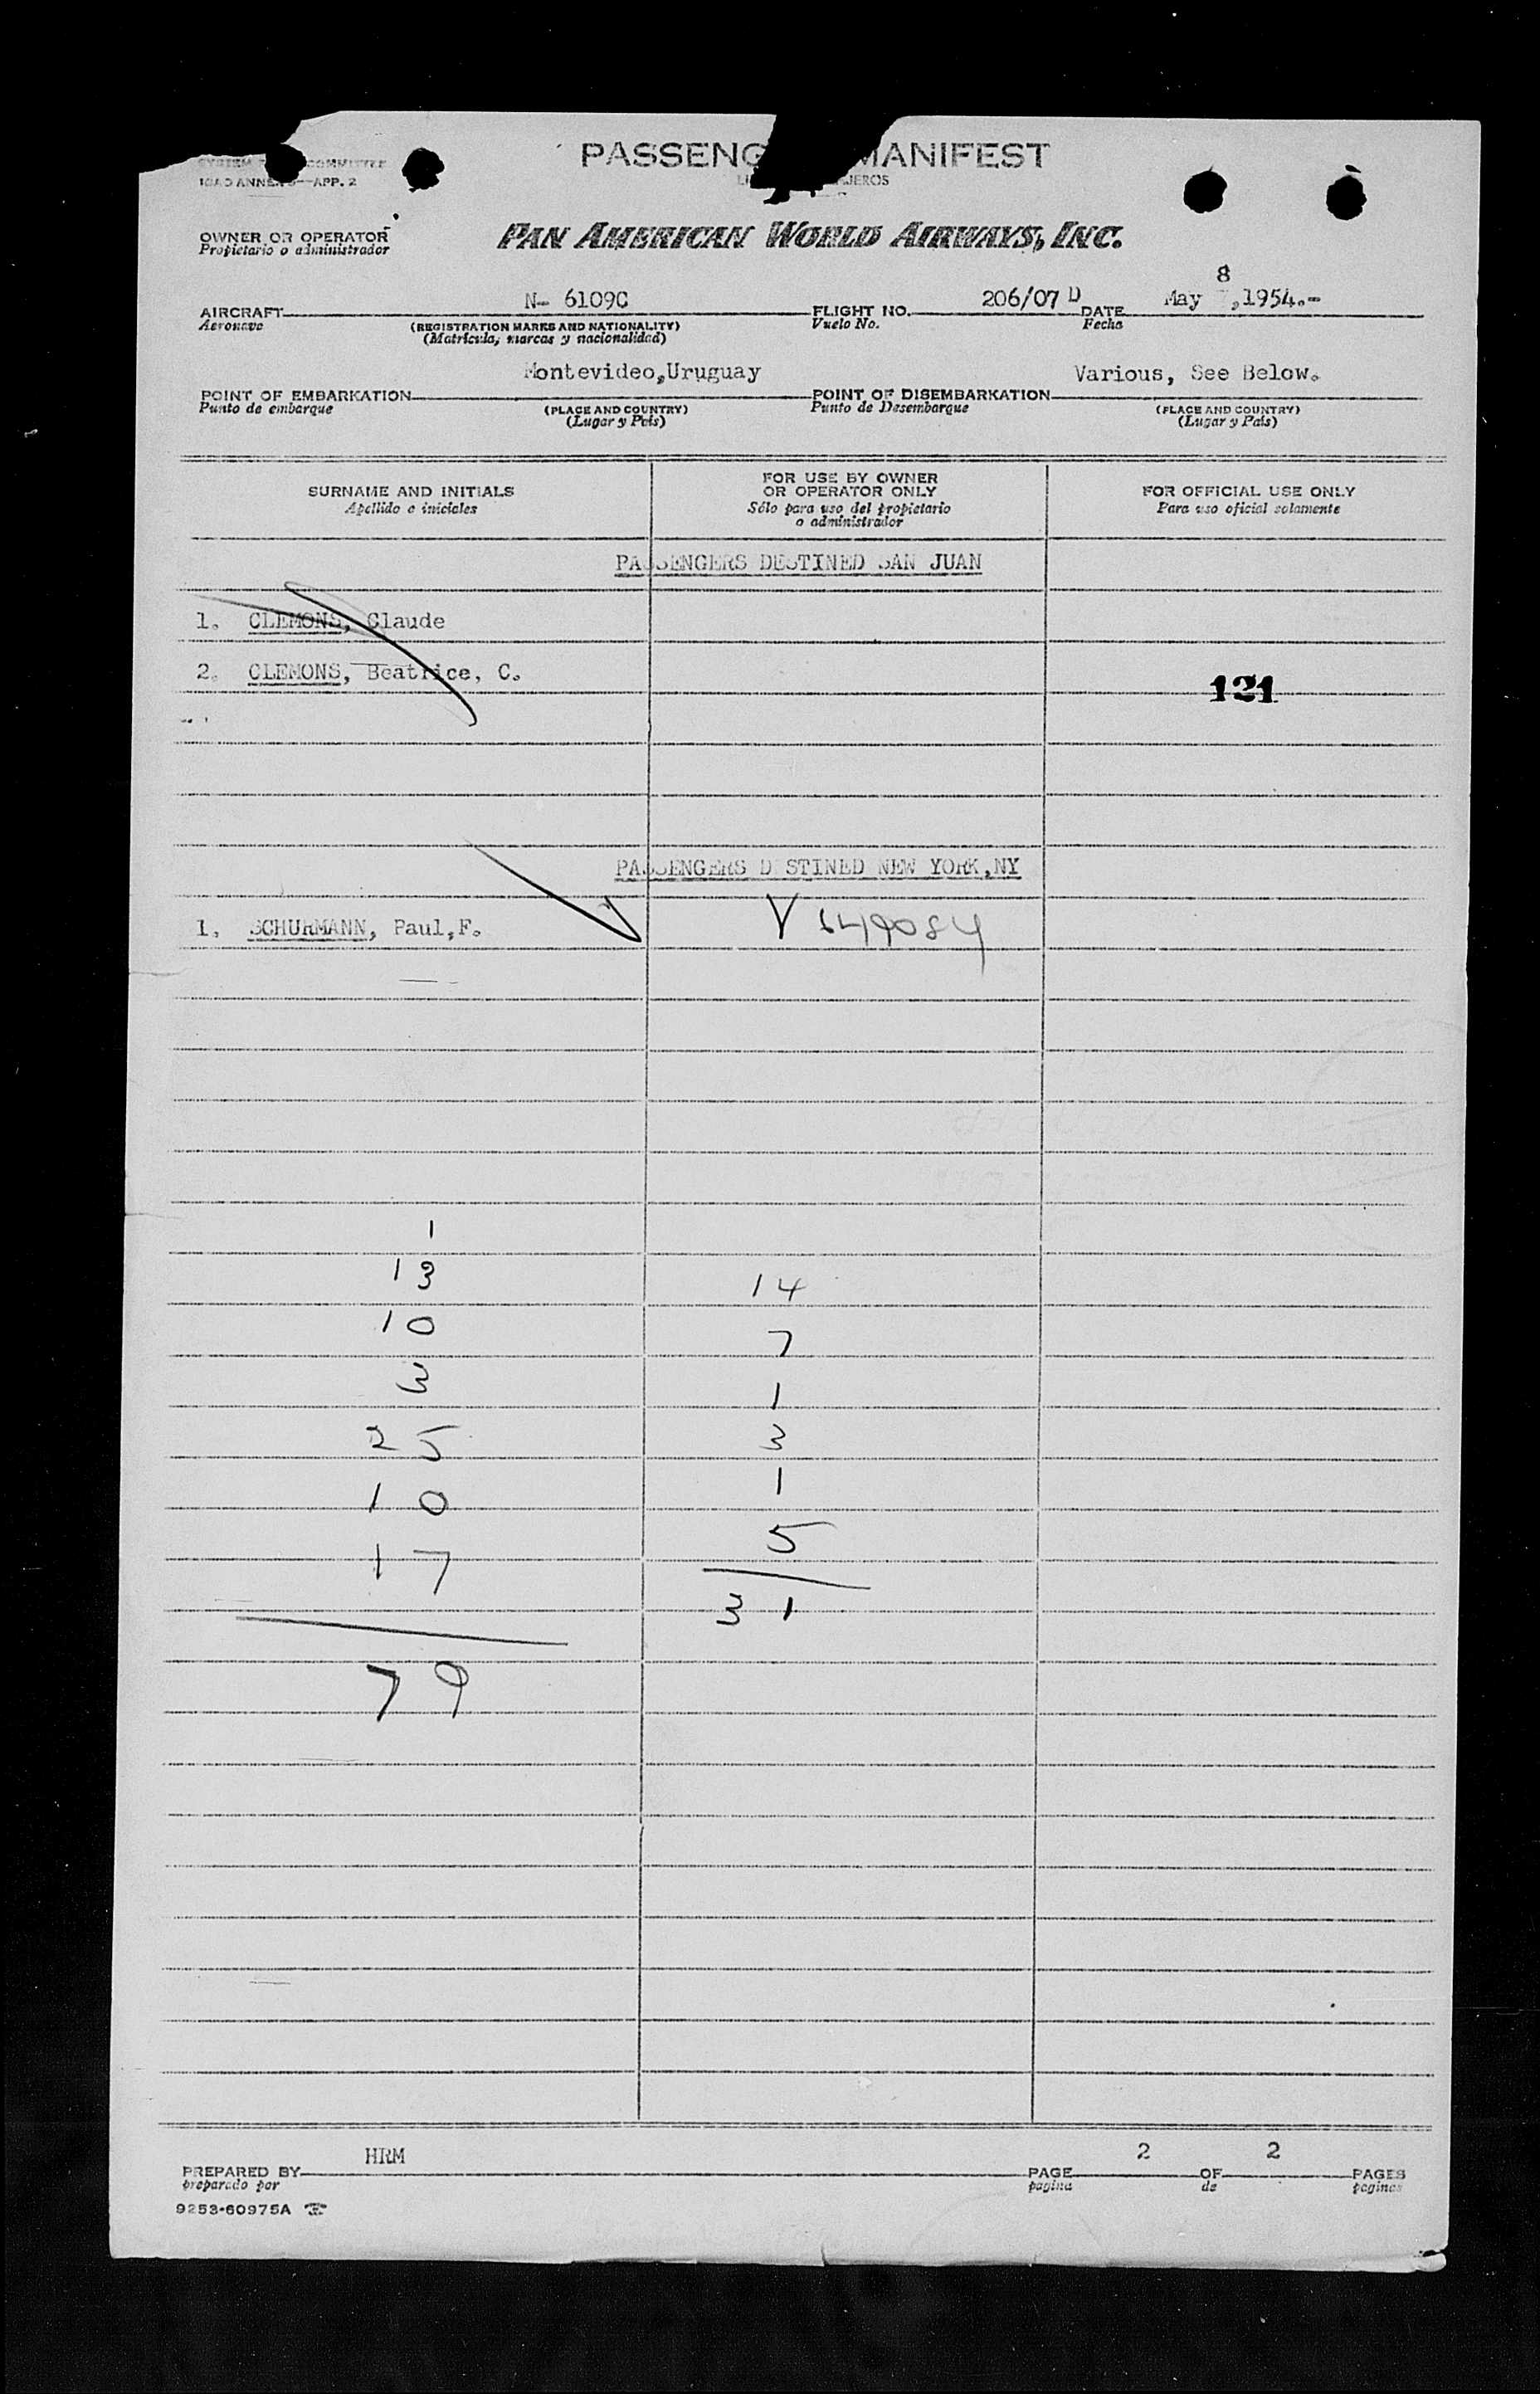 PASSENG MANIFEST
SYSTEM COMMITTEE
ICAO ANNEX —APP. 2
JEROS
OWNER OR OPERATOR
Propietario o administrador
PAN AMERICAN WORLD AIRWAYS, INC.
8
N- 6109C 206/07 D May ,1954.-
AIRCRAFT FLIGHT NO. DATE
Aeronave (REGISTRATION MARKS AND NATIONALITY) Vuelo No. Fecha
(Matrícula, marcas y nacionalidad)
Montevideo,Uruguay Various, See Below.
POINT OF EMBARKATION POINT OF DISEMBARKATION
Punto de embarque (PLACE AND COUNTRY) Punto de Desembarque (PLACE AND COUNTRY)
(Lugar y País) (Lugar y País)
SURNAME AND INITIALS FOR USE BY OWNER OR OPERATOR ONLY FOR OFFICIAL USE ONLY
Apellido e iniciales Sólo para uso del propietario o administrador Para uso oficial solamente
PASSENGERS DESTINED SAN JUAN
1. CLEMONS, Claude
2. CLEMONS, Beatrice, C.
121
PASSENGERS D STINED NEW YORK,NY
1. SCHURMANN, Paul,F. V 649084
1
13 14
10 7
3 1
25 3
10 1
17 5
31
79
HRM 2 2
PREPARED BY PAGE OF PAGES
preparado por pagina de paginas
9253-60975A